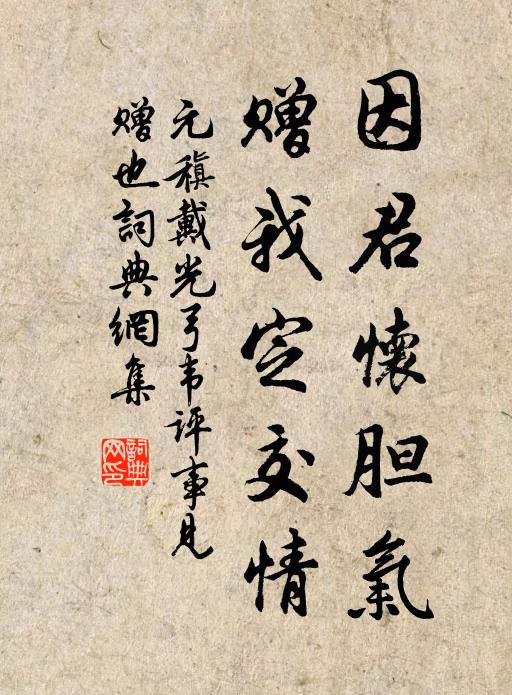 因君懷胆氣
贈我定交情
元稹戴光弓韦评事見
贈也詞典網集
詞典
网印